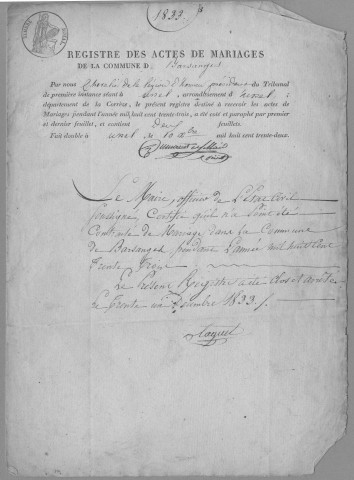 1833.
REGISTRE DES ACTES DE MARIAGES
DE LA COMMUNE D Barsanges
Par nous Chevalier de la légion d'honneur président du Tribunal
de première instance séant à ussel arrondissement d ussel
département de la Corrèze, le présent registre destiné à recevoir les actes de
Mariages pendant l'année mil huit cent trente-trois, a été coté et paraphé par premier
et dernier feuillet, et contient Deux feuillets.
Fait double à ussel le 10 Xbre mil huit cent trente-deux.
Le Maire, officier de L'état Civil
soussigné Certifie qu'il n'a point été
Contracté de Mariage dans la Commune
de Barsanges pendant L'année mil huit Cent
trente trois
Le Présent Registre a été clos et arrêté
Le trente un Décembre 1833 /.